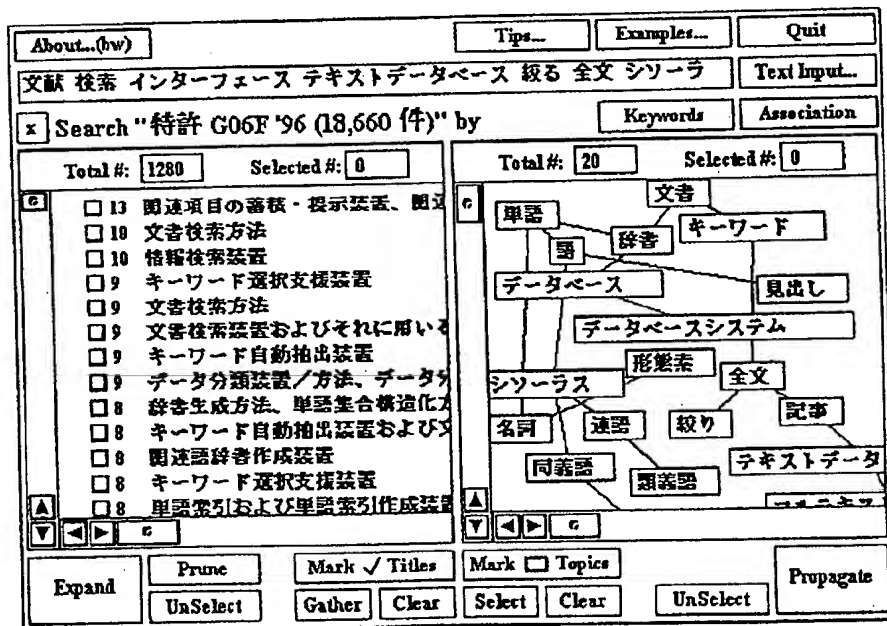 About...(hw) Tips... Examples... Quit
文献 検索 インターフェース テキストデータベース 絞る 全文 シソーラ Text Input...
x Search "特許 G06F '96 (18,660 件)" by Keywords Association
Total #: 1280 Selected #: 0
c
13 関連項目の蓄積・提示装置、関連
10 文書検索方法
10 情報検索装置
9 キーワード選択支援装置
9 文書検索方法
9 文書検索装置およびそれに用いる
9 キーワード自動抽出装置
9 データ分類装置/方法、データ分
8 辞書生成方法、単語集合構造化方
8 キーワード自動抽出装置および文
8 関連語辞書作成装置
8 キーワード選択支援装置
8 単語索引および単語索引作成装置
c
Total #: 20 Selected #: 0
c
文書
単語
辞書 キーワード
語
データベース 見出し
データベースシステム
形態素
シソーラス 全文
名詞 連語 絞り 記事
同義語 類義語 テキストデータ
c
Expand Prune Mark ✓ Titles Mark Topics Propagate
UnSelect Gather Clear Select Clear UnSelect